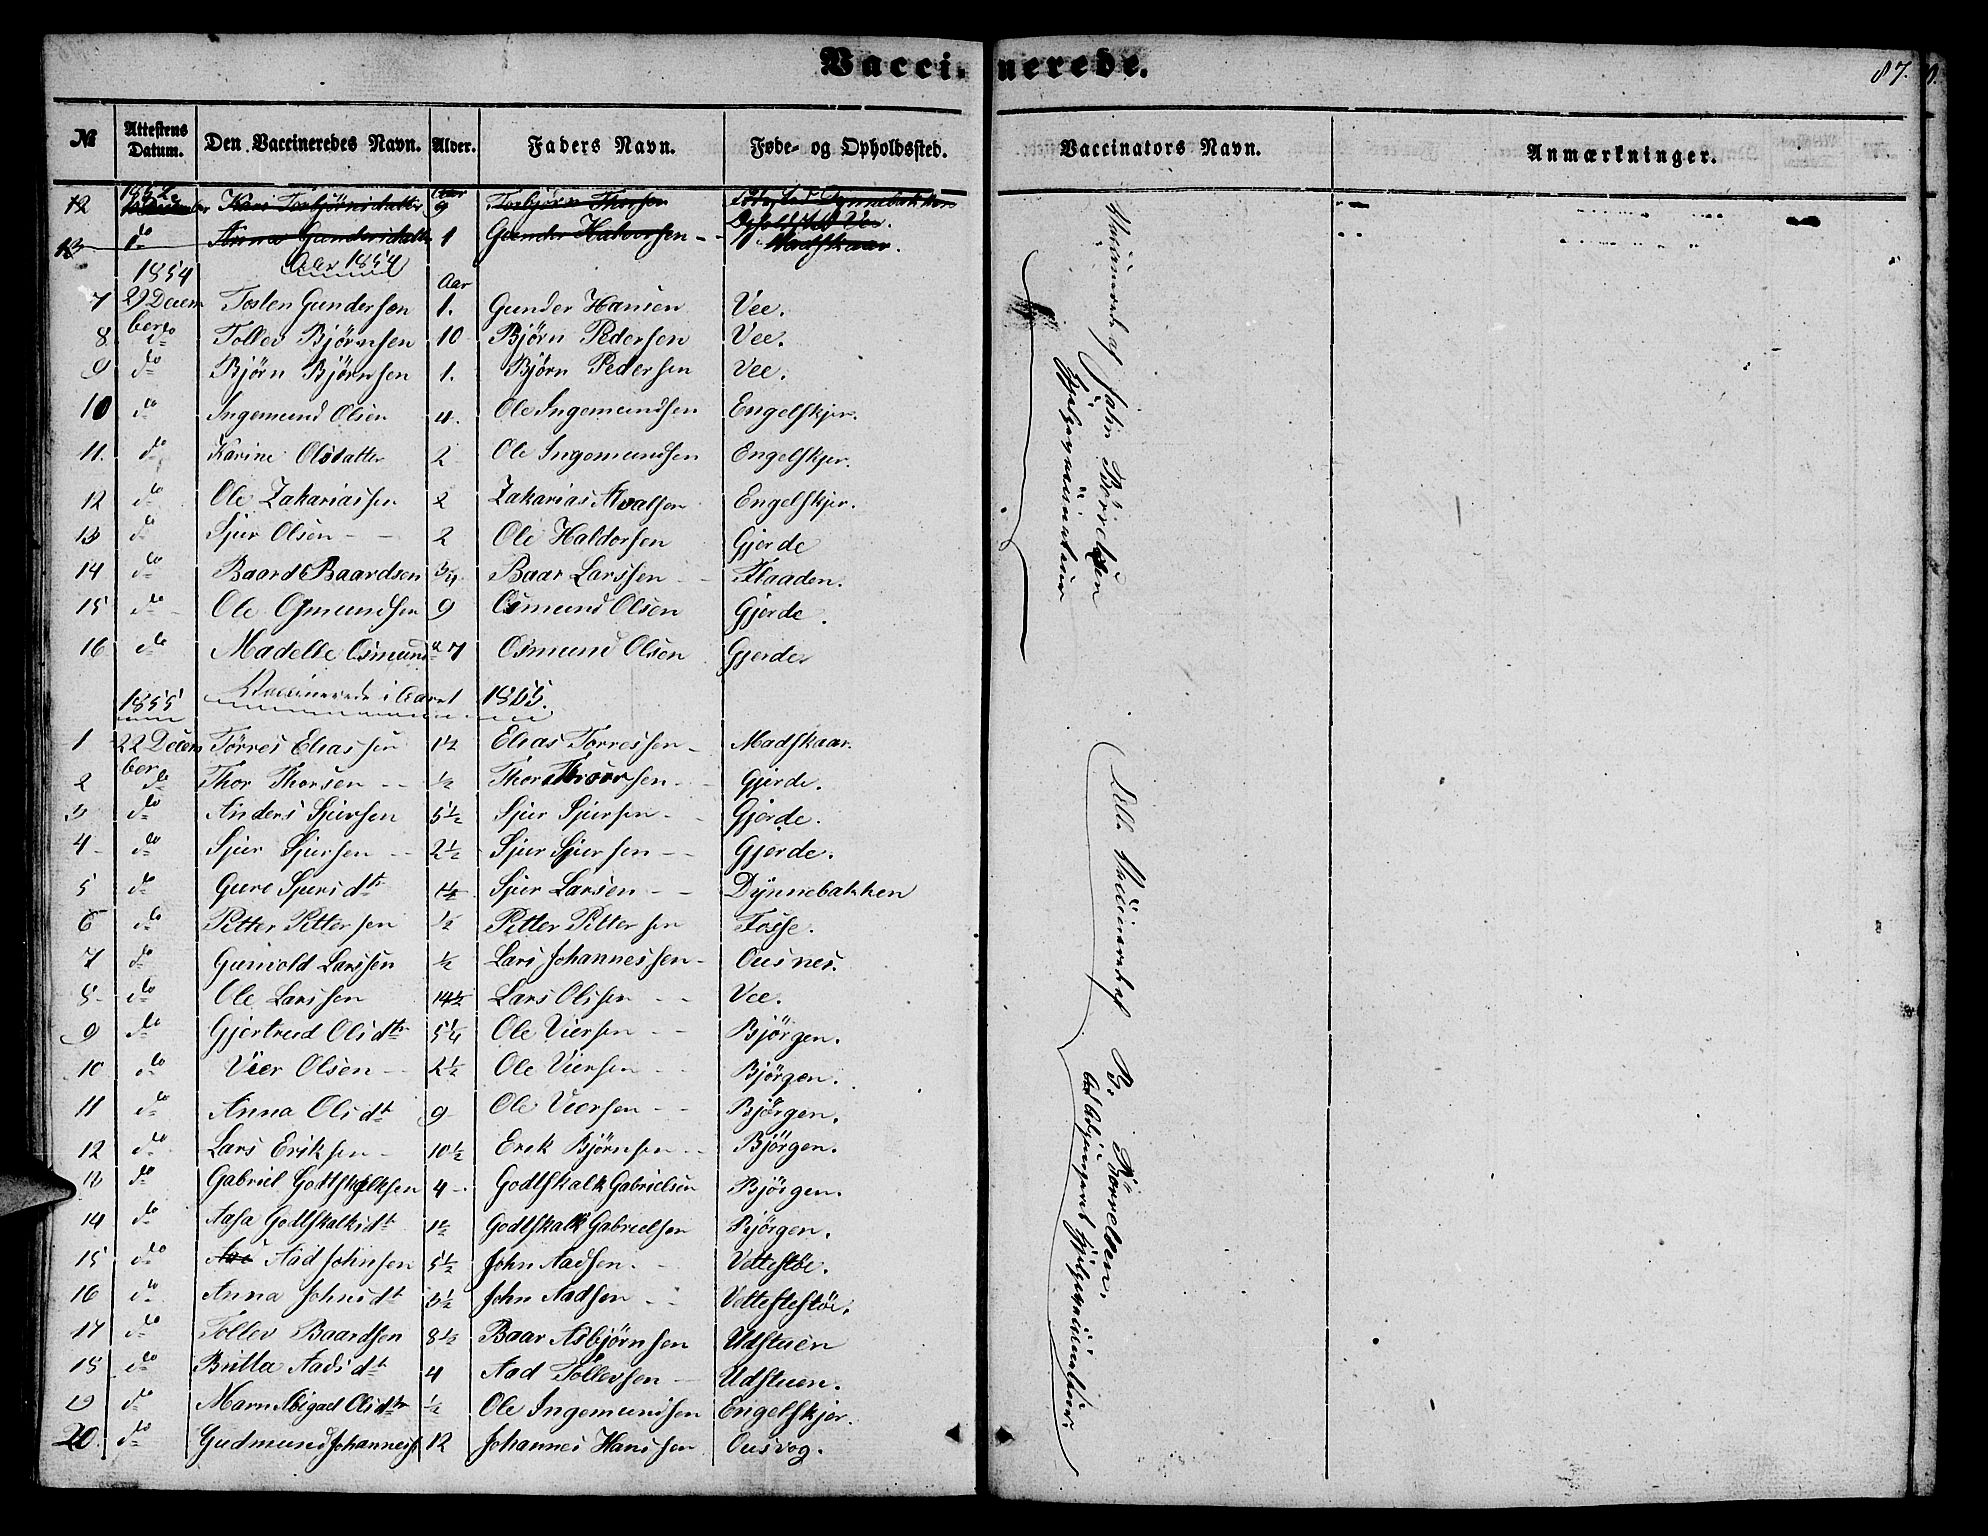 Vaccinerede.
87.
№ Attestens Datum. Den Vaccineredes Navn. Alder. Faders Navn. Føde- og Opholdssted. Vaccinators Navn. Anmærkninger.
1852 Aar
12 Kari Torbjørnsdatter 9 Torbjørn Thorsen Dynnebakken
Opholdsted Vee.
13 do Anna Gundersdatter 1 Gunder Halvorsen - - Madskaar.
1854 Aar 1854 Aar
7 22 Decem Tosten Gundersøn 1. Gunder Hansen Vee.
ber
8 do Tollev Bjørnsen 10 Bjørn Pedersen Vee.
9 do Bjørn Bjørnsen 1. Bjørn Pedersen Vee.
10 do Ingemund Olsen 4. Ole Ingemundsen Engelskjer.
11. do Karine Olsdatter 2 Ole Ingemundsen Engelskjer.
12 do Ole Zakariassen 2 Zakarias Engelskjer.
13 do Sjur Olsen - - 2 Ole Haldorsen Gjerde
14 do Baard Baardsen 3/4 Baar Larssen - - Flaaden.
15 do Ole Osmundsen 9 Osmund Olsen Gjerde.
16 do Madelle Osmund 7 Osmund Olsen Gjerde
Vaccinerede af Børrelsen
Hjelpevaccinateur
1855 Vaccinerede i Aaret 1855.
1 22 Decem Tørres Eliassen 1½ Elias Torressen - Madskaar.
ber
2 do Thor Thorsen - - ½ Thor Thorsen - - Gjerde.
3 do Anders Sjursen 5½ Sjur Sjursen - Gjerde.
4 - do Sjur Sjursen - - 2½ Sjur Sjursen - - Gjerde.
5 do Gure Sjursdtr 1½ Sjur Larsen - - Dÿnnebakken
6 do Petter Pettersen ½ Petter Pettersen Fosse.
7 do Gunvold Larssen ½ Lars Johannessen - Ousnes.
8 - do Ole Larssen 14½ Lars Olssen - - Vee.
9 do Gjertrud Olsdtr 5¼ Ole Viersen - - Bjørgen.
10 do Vier Olsen - - 2½ Ole Viersen - - Bjørgen.
11 do Anna Olsdt 9 - Ole Viersen - - Bjørgen.
12 do Lars Eriksen - 10½ Erek Bjørnsen - - Bjørgen.
13 do Gabriel Godtskalksen 4 - Godtskalk Gabrielsen Bjørgen.
14 do Aasa Godtskalksdt 1½ Godtskalk Gabrielsen Bjørgen.
15 do Aad Johnsen 5½ John Aadsen. - Vettestøe.
16 do Anna Johnsdt 3½ John Aadsen - - Vettestestöe.
17 do Tollev Baardsen 8½ Baar Asbjørnsen Udstuen
18 do Britta Aadsdt 4 Aad Tollevsen - Udstuen.
19 do Maren Abigael Olsdtr ½ Ole Ingemundsen Engelskjer.
20. do Gudmund Johanness 12 Johannes Hanssen Ousvog.
Vaccinered af B. Børrelsen.
Hjelpevaccinateur.